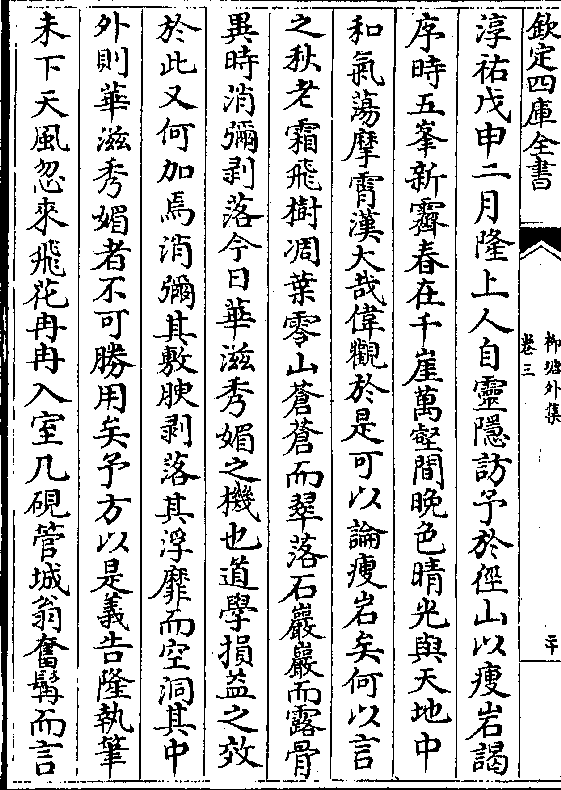 欽定四庫全書
柳塘外集
卷三
二十
淳祐戊申二月隆上人自靈隱訪予於徑山以瘦岩謁
序時五峯新霽春在千崖萬壑間晚色晴光與天地中
和氣蕩摩霄漢大哉偉觀於是可以論瘦岩矣何以言
之秋老霜飛樹凋葉零山蒼蒼而翠落石巖巖而露骨
異時消彌剥落今日華滋秀媚之機也道學損益之效
於此又何加焉消彌其敷腴剥落其浮靡而空洞其中
外則華滋秀媚者不可勝用矣予方以是義告隆執筆
未下天風忽來飛花冉冉入室几硯管城翁奮髯而言